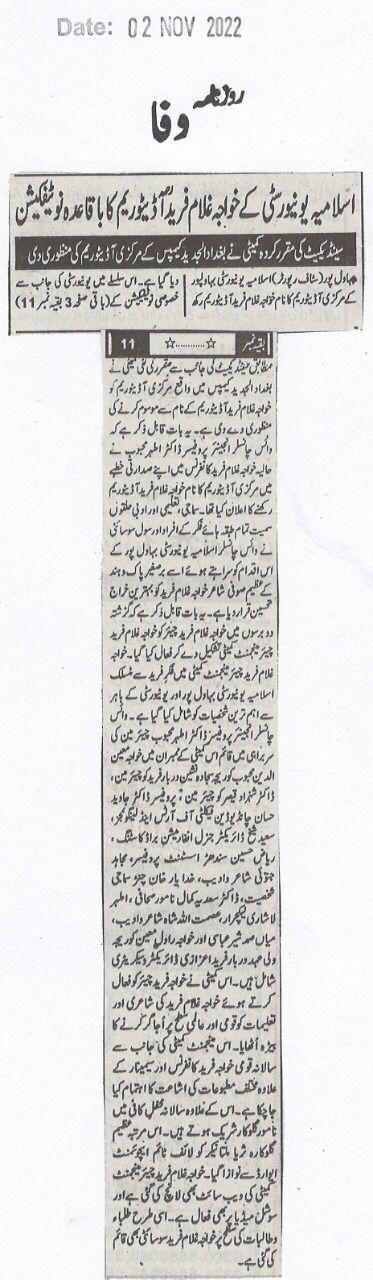 Date: 02 NOV 2022
روزنامہ
وفا
اسلامیہ یونیورسٹی کے خواجہ غلام فرید آڈیٹوریم کا باقاعدہ نوٹیفکیشن
سینڈیکیٹ کی مقرر کردہ کمیٹی نے بغداد الجدید کیمپس کے مرکزی آڈیٹوریم کی منظوری دی
بہاول پور (سٹاف رپورٹر) اسلامیہ یونیورسٹی بہاولپور
کے مرکزی آڈیٹوریم کا نام خواجہ غلام فرید آڈیٹوریم رکھ
دیا گیا ہے۔ اس سلسلے میں یونیورسٹی کی جانب سے
خصوصی نوٹیفکیشن کے (باقی صفحہ 3 بقیہ نمبر 11)
بقیہ نمبر ☆............☆ 11
مطابق سینڈیکیٹ کی جانب سے مقرر کی گئی کمیٹی نے
بغداد الجدید کیمپس میں واقع مرکزی آڈیٹوریم کو
خواجہ غلام فرید آڈیٹوریم کے نام سے موسوم کرنے کی
منظوری دے دی ہے۔ یہ بات قابل ذکر ہے کہ
وائس چانسلر انجینئر پروفیسر ڈاکٹر اطہر محبوب نے
حالیہ خواجہ غلام فرید کانفرنس میں اپنے صدارتی خطبے
میں مرکزی آڈیٹوریم کا نام خواجہ غلام فرید آڈیٹوریم
رکھنے کا اعلان کیا تھا۔ سماجی، تعلیمی اور ادبی حلقوں
سمیت تمام طبقہ ہائے فکر کے افراد اور سول سوسائٹی
نے وائس چانسلر اسلامیہ یونیورسٹی بہاول پور کے
اس اقدام کو سراہتے ہوئے اسے برصغیر پاک و ہند
کے عظیم صوفی شاعر خواجہ غلام فرید کو بہترین خراج
تحسین قرار دیا ہے۔ یہ بات قابل ذکر ہے کہ گزشتہ
دو برسوں میں خواجہ غلام فرید چیئر کو خواجہ فرید
چیئر مینجمنٹ کمیٹی تشکیل دے کر فعال کیا گیا۔ خواجہ
غلام فرید چیئر مینجمنٹ کمیٹی میں فکر فرید سے منسلک
اسلامیہ یونیورسٹی بہاول پور اور یونیورسٹی کے باہر
سے اہم ترین شخصیات کو شامل کیا گیا ہے۔ وائس
چانسلر انجینئر پروفیسر ڈاکٹر اطہر محبوب چیئرمین کی
سربراہی میں قائم اس کمیٹی کے ممبران میں خواجہ معین
الدین محبوب کوریجہ سجادہ نشین دربار فرید کو چیئرمین،
ڈاکٹر شہزاد قیصر کو چیئرمین، پروفیسر ڈاکٹر جاوید
حسان چانڈیو ڈین فیکلٹی آف آرٹس اینڈ لینگوئجز،
سعید شیخ ڈائریکٹر جنرل انفارمیشن براڈ کاسٹنگ،
ریاض حسین سندھڑ اسسٹنٹ پروفیسر، مجاہد
جتوئی شاعر و ادیب، خدایار خان چنڑ سماجی
شخصیت، ڈاکٹر سعدیہ کمال نامور صحافی، اظہر
لاشاری لیکچرار، عصمت اللہ شاہ شاعر و ادیب،
میاں شیر عباسی اور خواجہ راول معین کوریجہ
ولی عہد دربار فرید اعزازی ڈائریکٹر و سیکریٹری
شامل ہیں۔ اس کمیٹی نے خواجہ فرید چیئر کو فعال
کرتے ہوئے خواجہ غلام فرید کی شاعری اور
تعلیمات کو قومی اور عالمی سطح پر اجاگر کرنے کا
بیڑہ اٹھایا۔ اس مینجمنٹ کمیٹی کی جانب سے
سالانہ قومی خواجہ فرید کانفرنس اور سیمینار کے
علاوہ مختلف مطبوعات کی اشاعت کا اہتمام کیا
جا چکا ہے۔ اس کے علاوہ سالانہ محفل کافی میں
نامور گلوکار شریک ہوتے ہیں۔ اس مرتبہ عظیم
گلوکارہ ثریا ملتانیکر کو لائف ٹائم اچیومنٹ
ایوارڈ سے نوازا گیا۔ خواجہ غلام فرید چیئر مینجمنٹ
کمیٹی کی ویب سائٹ بھی لانچ کی گئی ہے اور
سوشل میڈیا پر بھی فعال ہے۔ اسی طرح طلباء
و طالبات کی سطح پر خواجہ غلام فرید سوسائٹی بھی قائم
کی گئی ہے۔